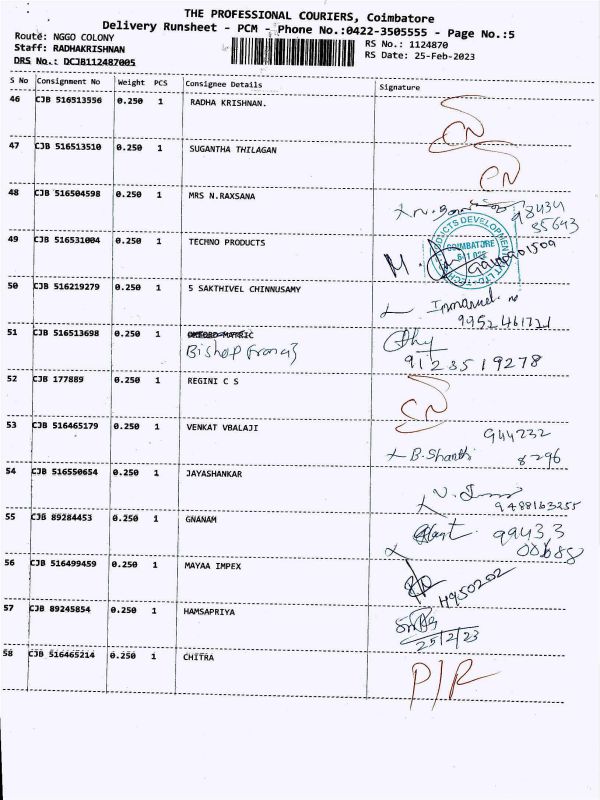 THE PROFESSIONAL COURIERS, Coimbatore
Delivery Runsheet - PCM - Phone No.:0422-3505555 - Page No.:5
Route: NGGO COLONY
RS No.: 1124870
Staff: RADHAKRISHNAN
RS Date: 25-Feb-2023
DRS No.: DCJB112487005
S No Consignment No Weight PCS Consignee Details Signature
46 CJB 516513556 0.250 1 RADHA KRISHNAN.
47 CJB 516513510 0.250 1 SUGANTHA THILAGAN
48 CJB 516504598 0.250 1 MRS N.RAXSANA
98434
35643
49 CJB 516531004 0.250 1 TECHNO PRODUCTS
COIMBATORE
50 CJB 516219279 0.250 1 S SAKTHIVEL CHINNUSAMY
Immanuel
9952461721
51 CJB 516513698 0.250 1 OXFORD MATRIC
Bishop Francis
9123519278
52 CJB 177889 0.250 1 REGINI C S
53 CJB 516465179 0.250 1 VENKAT VBALAJI
944232
B. Shanthi 8296
54 CJB 516550654 0.250 1 JAYASHANKAR
9488163255
55 CJB 89284453 0.250 1 GNANAM
99433
00688
56 CJB 516499459 0.250 1 MAYAA IMPEX
57 CJB 89245854 0.250 1 HAMSAPRIYA
25/2/23
58 CJB 516465214 0.250 1 CHITRA
P/R